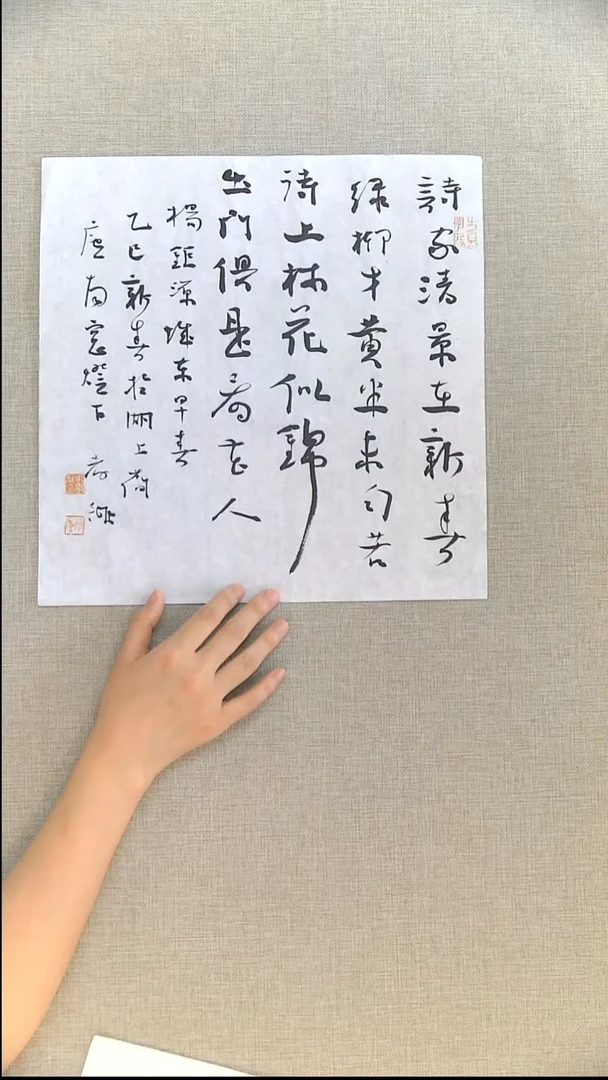 詩家清景在新春
緑柳才黄半未匀若
待上林花似錦
出門俱是看花人
楊鉅源城東早春
乙巳新春於湖上
南窓燈下